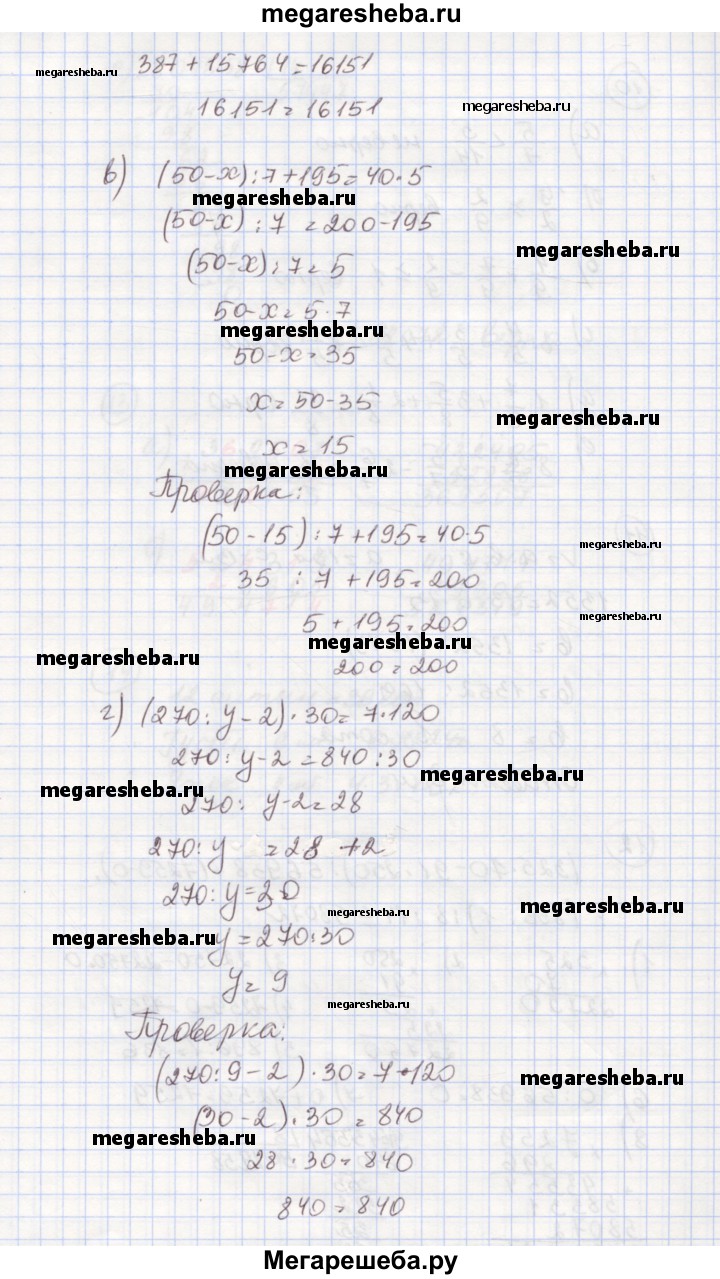 megaresheba.ru
387 + 15764 = 16151
megaresheba.ru
16151 = 16151
megaresheba.ru
в) (50-x):7+195=40·5
megaresheba.ru
(50-x):7 =200-195
megaresheba.ru
(50-x):7=5
50-x=5·7
megaresheba.ru
50-x=35
x=50-35
megaresheba.ru
x=15
megaresheba.ru
Проверка:
(50-15):7+195=40·5
megaresheba.ru
35 :7 +195=200
5+195=200
megaresheba.ru
megaresheba.ru
megaresheba.ru
200=200
г) (270:y-2)·30=7·120
270:y-2=840:30
megaresheba.ru
megaresheba.ru
270: y-2=28
270:y =28 +2
270:y=30
megaresheba.ru
megaresheba.ru
megaresheba.ru
y=270:30
y=9
megaresheba.ru
Проверка:
(270:9-2)·30=7·120
megaresheba.ru
(30-2)·30=840
megaresheba.ru
28·30=840
840=840
Мегарешеба.ру